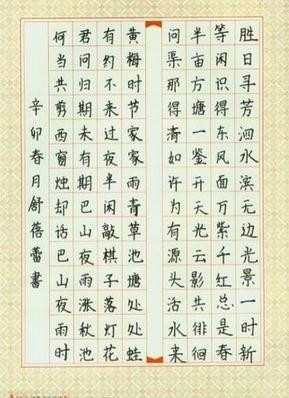 胜日寻芳泗水滨无边光景一时新
等闲识得东风面万紫千红总是春
半亩方塘一鉴开天光云影共徘徊
问渠那得清如许为有源头活水来
黄梅时节家家雨青草池塘处处蛙
有约不来过夜半闲敲棋子落灯花
君问归期未有期巴山夜雨涨秋池
何当共剪西窗烛却话巴山夜雨时
辛卯春月舒蓓蕾書